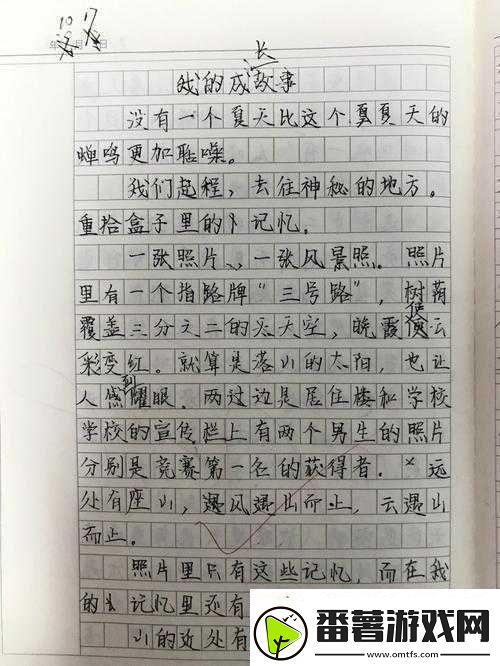 10 17
年 月 日
我的成长故事
没有一个夏天比这个夏夏天的
蝉鸣更加聒噪。
我们起程，去往神秘的地方。
重拾盒子里的记忆。
一张照片、一张风景照。照片
里有一个指路牌“三号路”，树荫
覆盖三分之二的天空，晚霞使云
彩变红。就算是落山的太阳，也让
人感到耀眼。两边是居住楼和学校
学校的宣传栏上有两个男生的照片
分别是竞赛第一名的获得者。远
处有座山，遇风遇山而止，云遇山
而止。
照片里只有这些记忆，而在我
的记忆里还有
山的近处有
番薯游戏网
www.omtfs.com